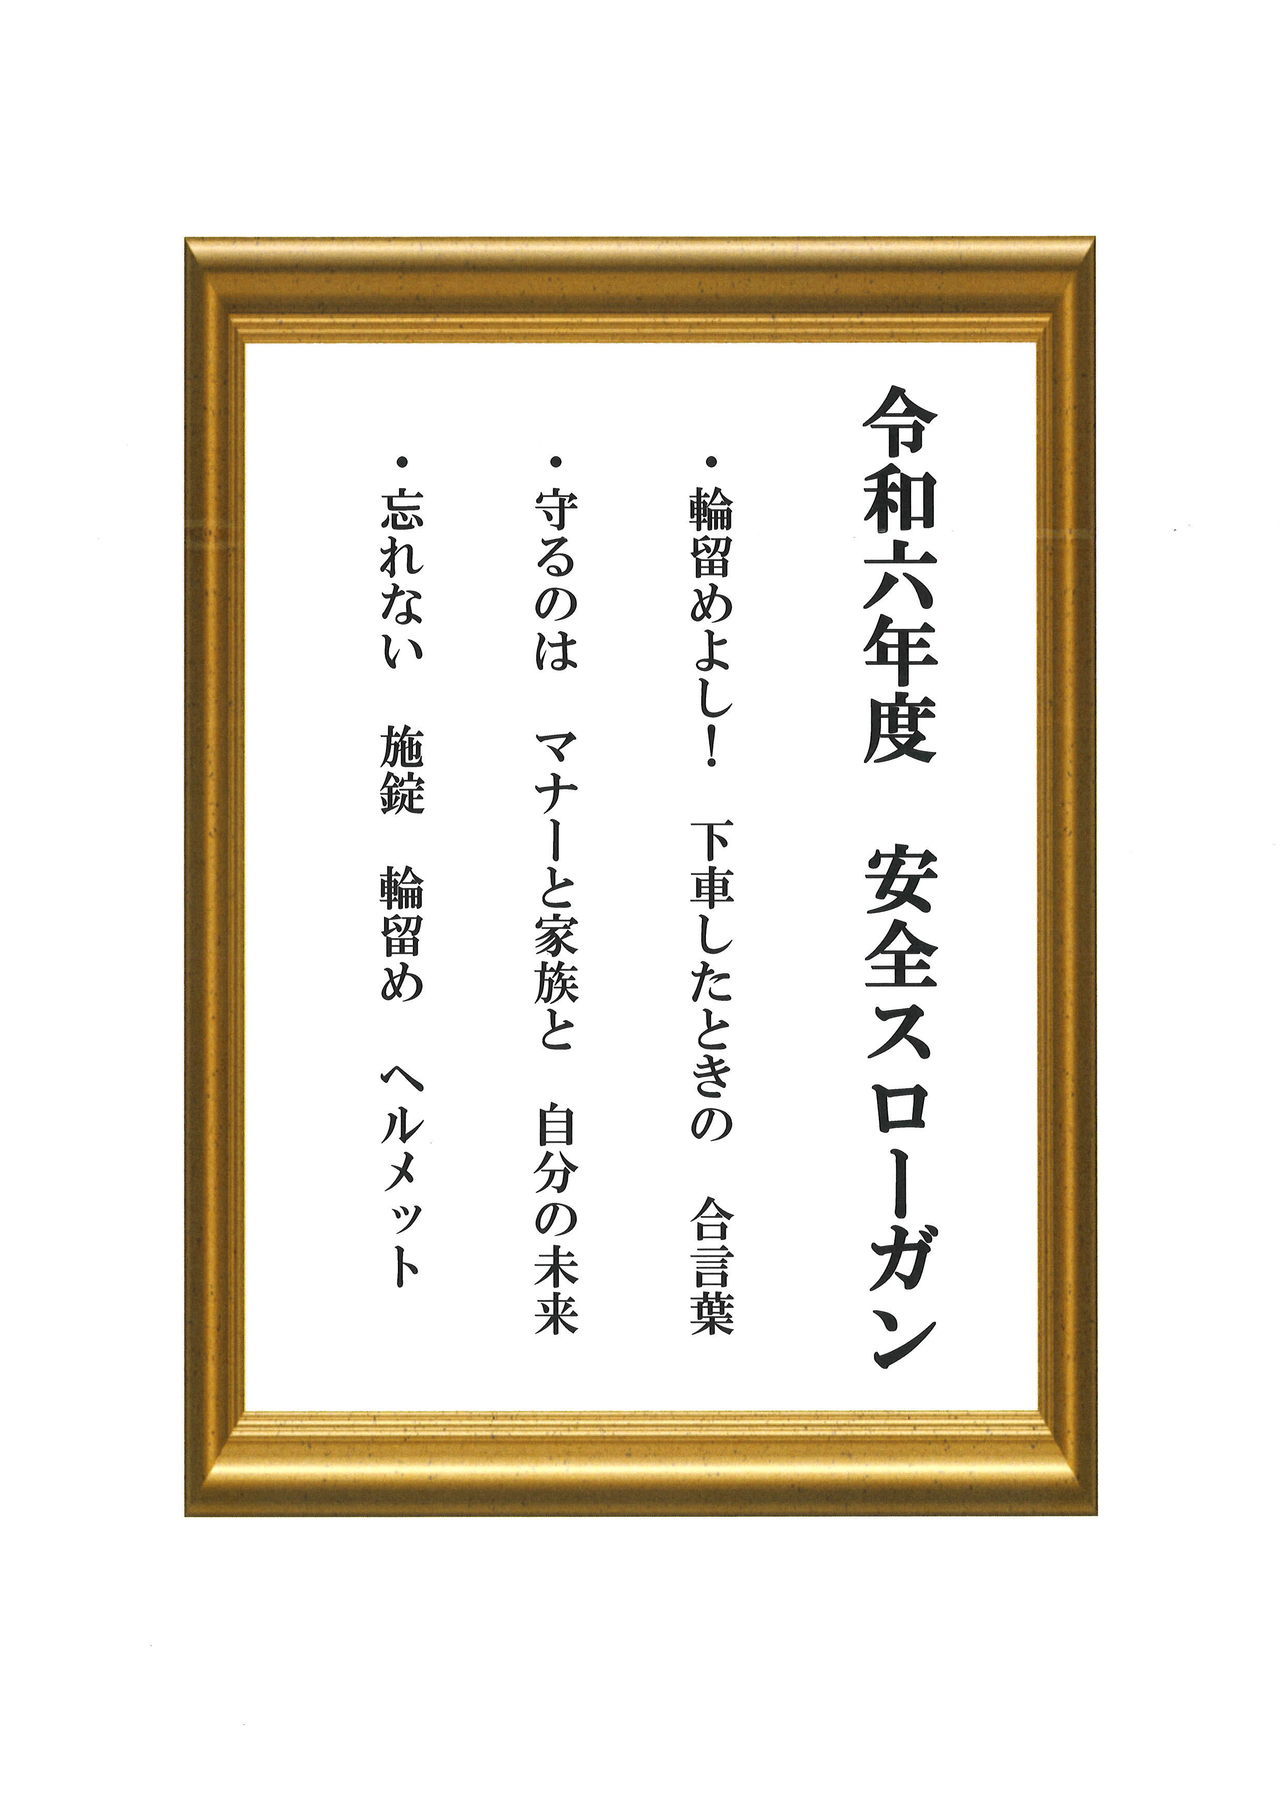 令和六年度　安全スローガン
・輪留めよし！　下車したときの　合言葉
・守るのは　マナーと家族と　自分の未来
・忘れない　施錠　輪留め　ヘルメット